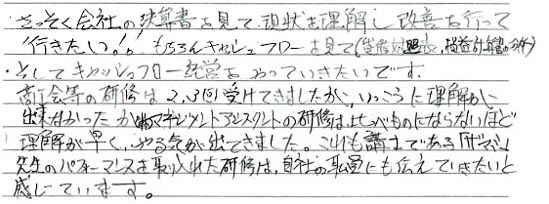 ・さっそく会社の決算書を見て現状を理解し改善を行って
行きたい!! もちろんキャッシュフローを見て(貸借対照表、損益計算書の分析)
・そしてキャッシュフロー経営をやっていきたいです。
商工会等の研修は2、3回受けてきましたが、いっこうに理解が
出来なかったが マネジメントアシスタントの研修は比べものにならないほど
理解が早く、やる気が出てきました。これも講師である
先生のパフォーマンスを取り入れた研修は、自社の社員にも伝えていきたいと
感じています。